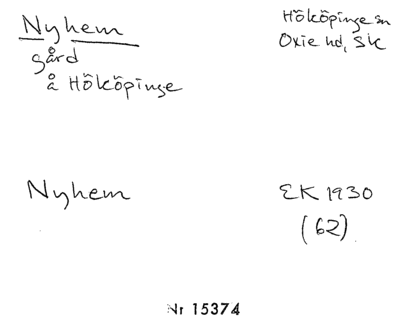 Nyhem
gård
å Hököpinge
Hököpinge sn
Oxie hd, Sk
Nyhem
EK 1930
(62)
Nr 15374